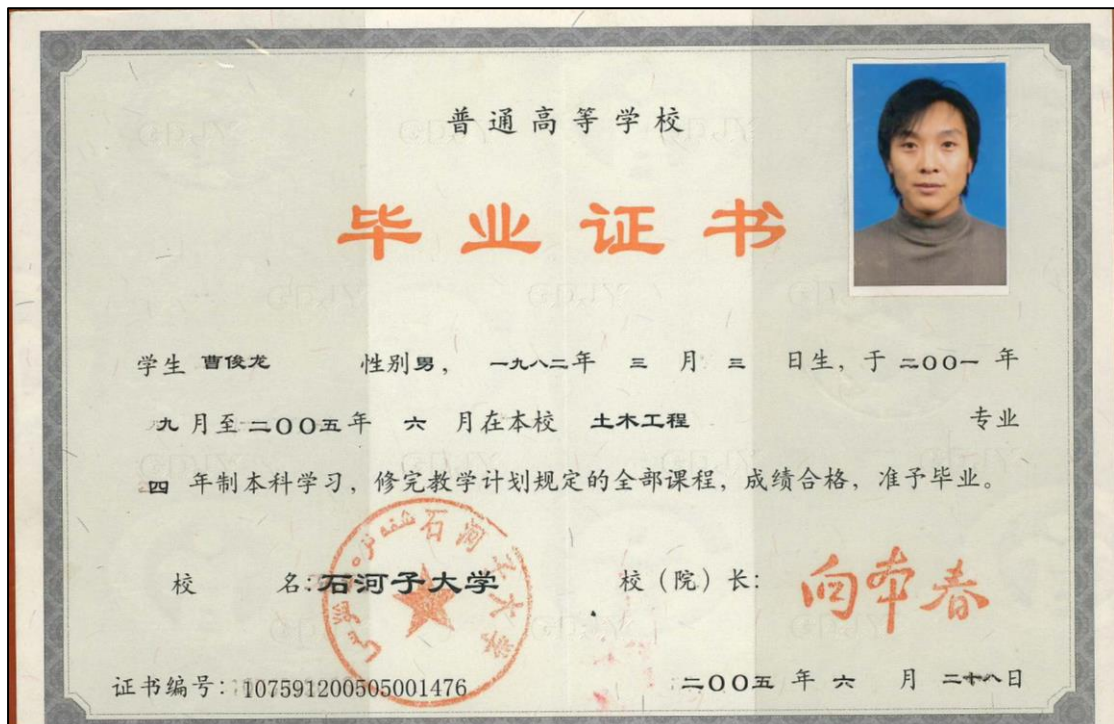 普通高等学校
毕业证书
学生 曹俊龙 性别男， 一九八二年 三 月 三 日生，于 二00一 年
九 月至 二00五年 六 月在本校 土木工程 专业
四 年制本科学习，修完教学计划规定的全部课程，成绩合格，准予毕业。
石河子大学
校 名:石河子大学 校（院）长: 向本春
证书编号: 107591200505001476 二00五 年 六 月 二十八日